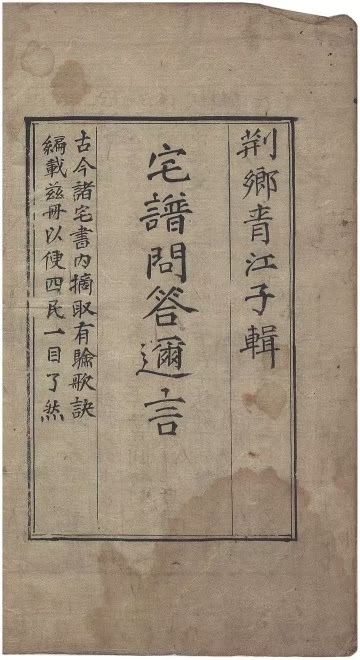 荆鄉青江子輯
宅譜問答邇言
古今諸宅書内摘取有騐歌訣
編載兹冊以便四民一目了然